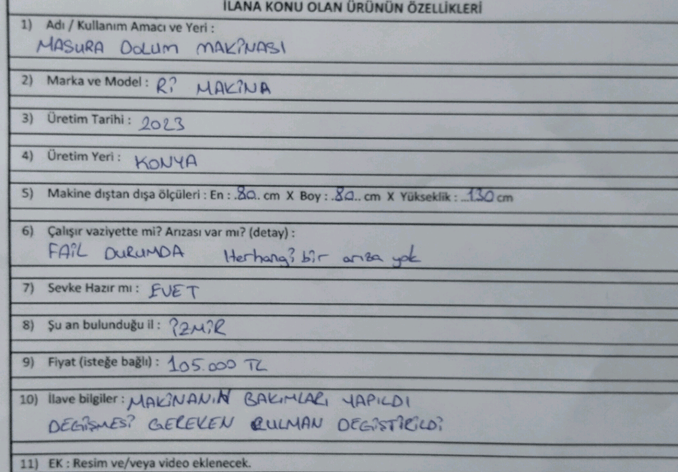 İLANA KONU OLAN ÜRÜNÜN ÖZELLİKLERİ
1) Adı / Kullanım Amacı ve Yeri :
MASURA DOLUM MAKİNASI
2) Marka ve Model : Rİ MAKİNA
3) Üretim Tarihi : 2023
4) Üretim Yeri : KONYA
5) Makine dıştan dışa ölçüleri : En : .80.. cm X Boy : .80.. cm X Yükseklik : ..130 cm
6) Çalışır vaziyette mi? Arızası var mı? (detay) :
FAİL DURUMDA Herhangi bir arıza yok
7) Sevke Hazır mı : EVET
8) Şu an bulunduğu il : İZMİR
9) Fiyat (isteğe bağlı) : 105.000 TL
10) İlave bilgiler : MAKİNANIN BAKIMLARI YAPILDI
DEĞİŞMESİ GEREKEN RULMAN DEĞİSTİRİLDİ
11) EK : Resim ve/veya video eklenecek.